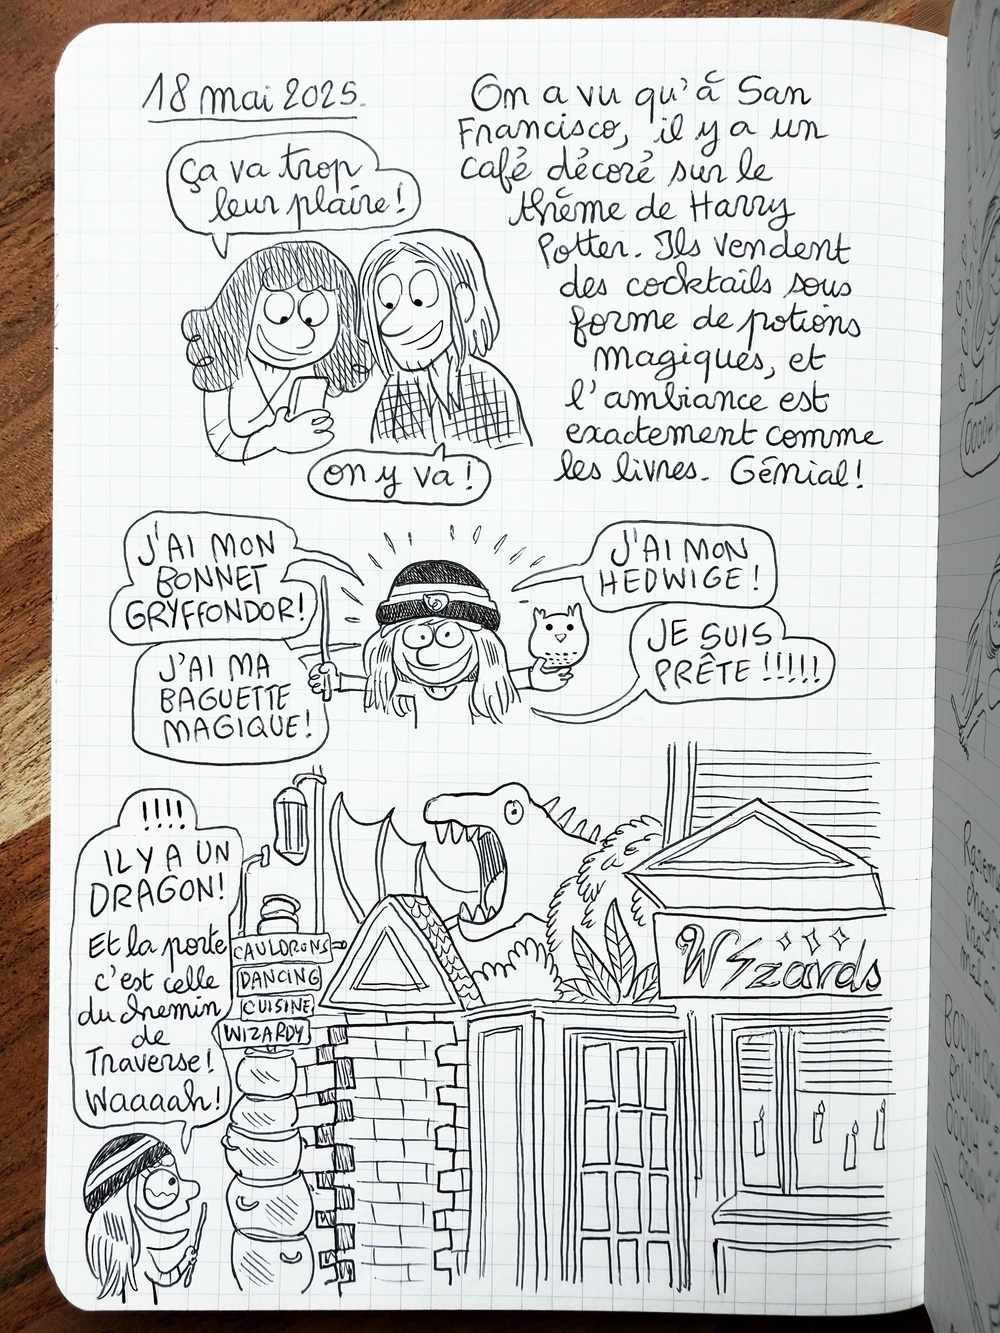 18 mai 2025.
On a vu qu'à San
Francisco, il y a un
café décoré sur le
thème de Harry
Potter. Ils vendent
des cocktails sous
forme de potions
magiques, et
l'ambiance est
exactement comme
les livres. Génial!
Ça va trop
leur plaire!
on y va!
J'AI MON
BONNET
GRYFFONDOR!
J'AI MA
BAGUETTE
MAGIQUE!
J'AI MON
HEDWIGE!
JE SUIS
PRÊTE !!!!!
!!!!
IL Y A UN
DRAGON!
Et la porte
c'est celle
du chemin
de
Traverse!
Waaaah!
CAULDRONS
DANCING
CUISINE
WIZARDY
Wizards